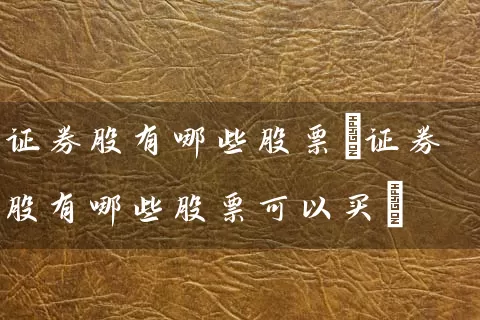 证券股有哪些股票 证券
股有哪些股票可以买